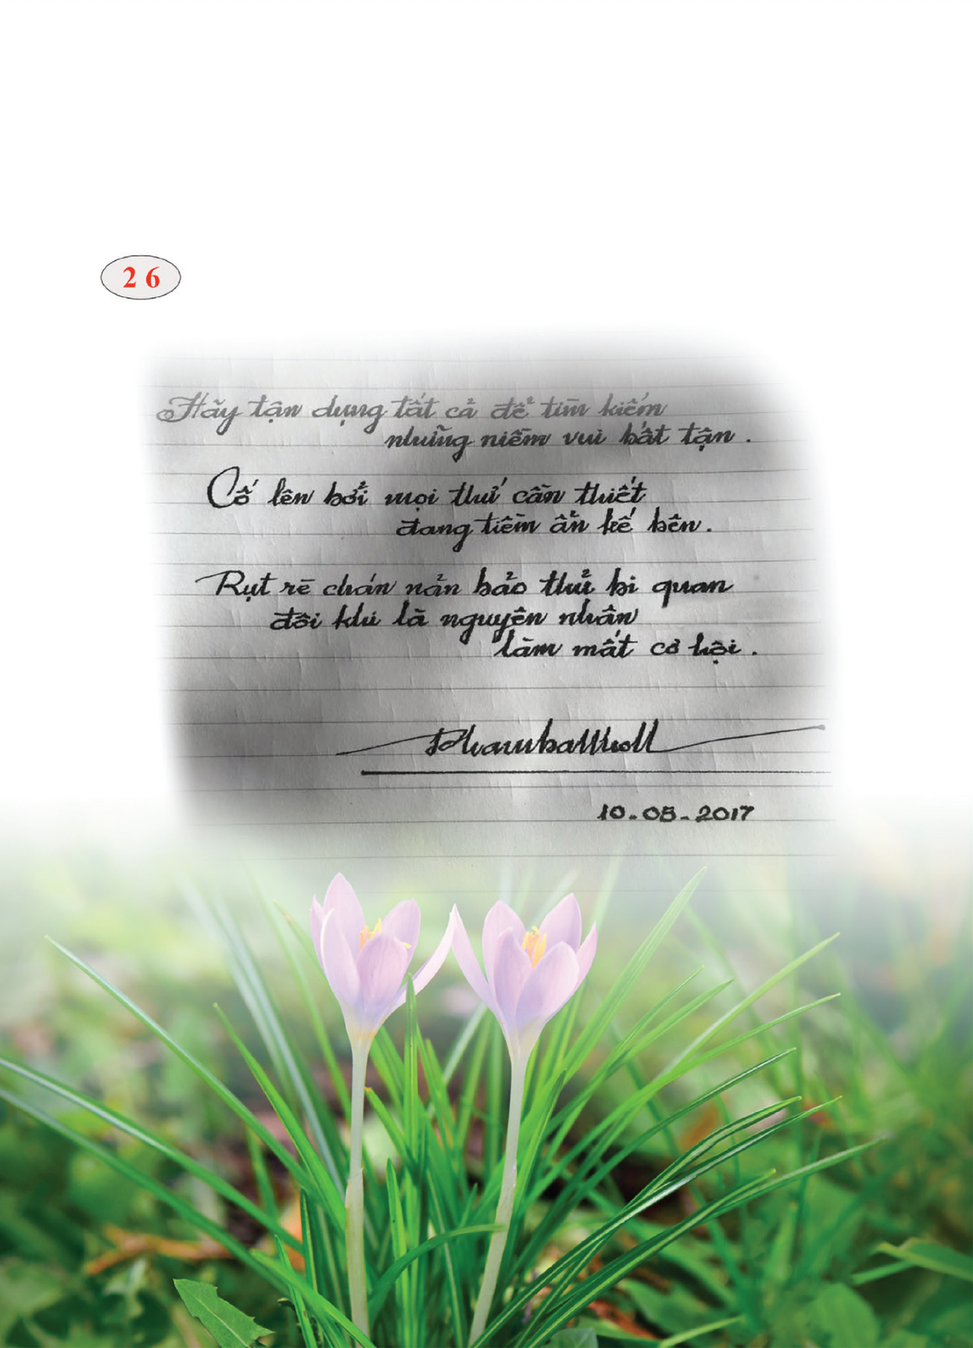 26
Hãy tận dụng tất cả để tìm kiếm
những niềm vui bất tận .
Cố lên bởi mọi thứ cần thiết
đang tiềm ẩn kế bên .
Rụt rè chán nản bảo thủ bi quan
đôi khi là nguyên nhân
làm mất cơ hội .
10-08-2017